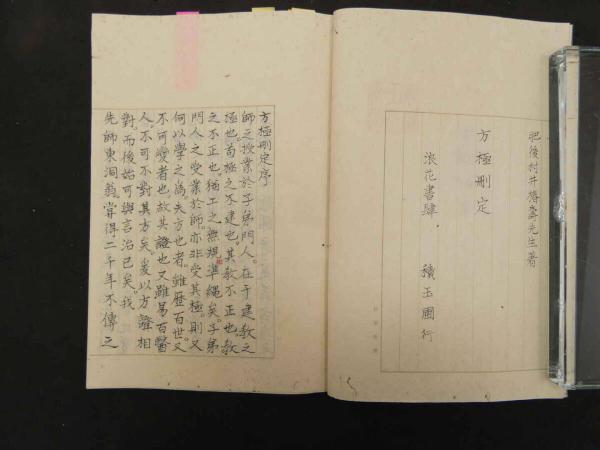 肥後村井椿壽先生著
方極刪定
浪花書肆 積玉圃行
方極刪定序
師之授業於子弟門人。在于建教之
極也。苟極之不建也。其教不正也。教
之不正也。猶工之無規準繩矣。子弟
門人之受業於師。亦非受其極。則又
何以學之為。夫方也者。雖歷百世。又
不可變者也。故其證也。又雖易百醫
人。不可不對其方矣。爰以方證相
對。而後始可與言治已矣。我
先師東洞翁。嘗得二千年不傳之